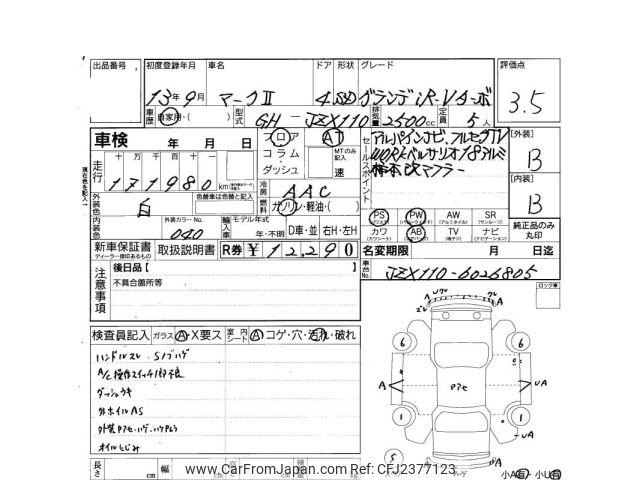 出品番号 初度登録年月 車名 ドア 形状 グレード 評価点
13年9月 マークⅡ 4 SD グランデiR-Vターボ 3.5
車歴 自家用・( ) 型式 GH-JZX110 排気量 2500cc 定員 5人
車検 年 月 日 フロア AT セールスポイント アルパインナビ、フルセグTV [外装]
走行 十 万 千 百 十 一 コラム MTのみ記入 WORK B
171980 km ダッシュ 速 マフラー
外装色 白 色替車は色替と記入 冷房 AAC [内装]
燃料 ガソリン・軽油・( ) B
内装色 外装カラーNo. 040 輸入車 モデル年式 年・不明 D車・並 右H・左H
PS PW AW SR 純正品のみ丸印
カワ AB TV ナビ
新車保証書 取扱説明書 R券 ¥12,290 名変期限 月 日迄
ディーラー捺印あるもの
注意事項 後日品【 】 車台No. JZX110-6026805
不具合箇所等 ロック車
検査員記入 ガラス A・X要ス 室内 シート A コゲ・穴・汚れ・破れ
ハンドルスレ、Sノブハゲ
A/C操作スイッチ1部不良
ダッシュウキ
外ホイルAS
オイルにじみ
長さ cm 幅 cm 高さ cm 積量 kg
6 6 1 1 S
A UA UA A
小A有・小U有
www.CarFromJapan.com Ref: CFJ2377123